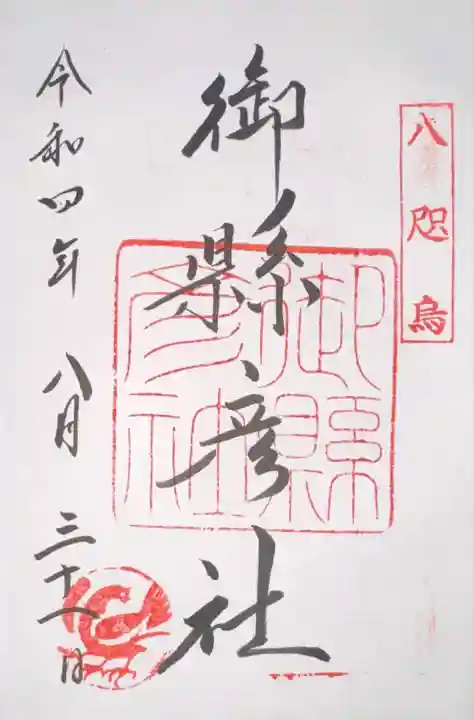 八咫烏
御縣彦社
御縣彦社
令和四年 八月 三十一日